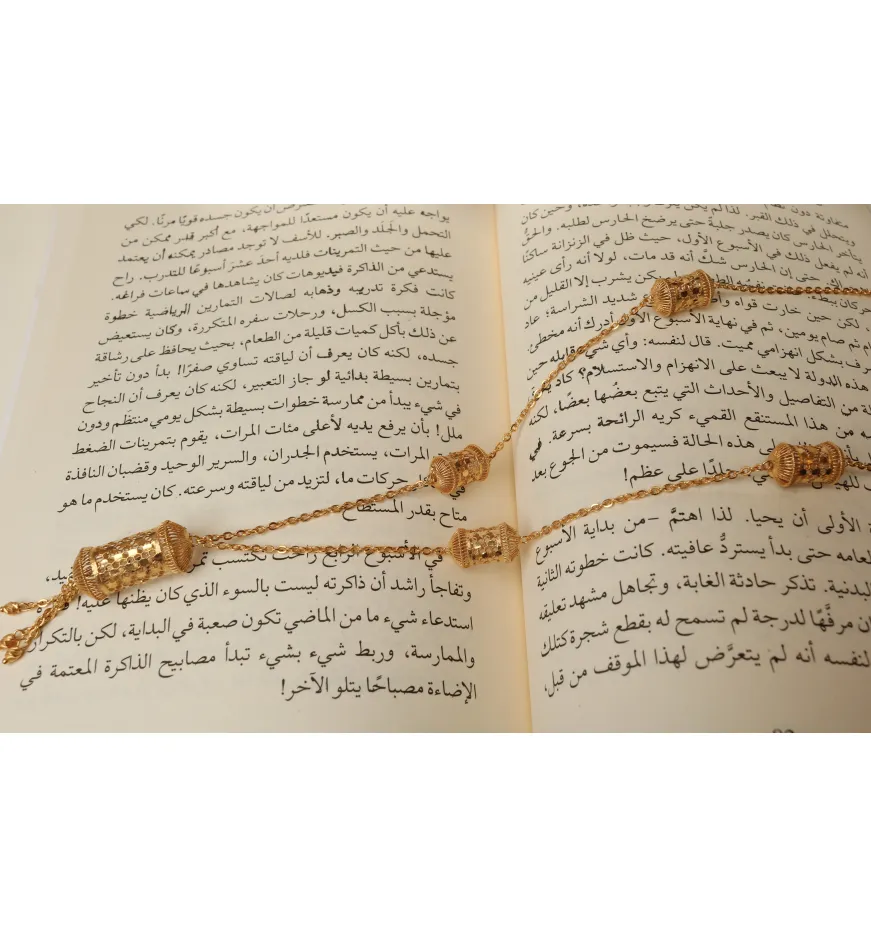 متفاوتة دون
ويتحلل في ذلك القبر. لذا لم يكن
يتأخر الحارس كان يصدر جلبةً حتى يرضخ الحارس لطلبه. والحقُّ
أنه لم يفعل ذلك في الأسبوع الأول، حيث ظل في الزنزانة ساكنًا
حتى إن الحارس شكَّ أنه قد مات، لولا أنه رأى عينيه
يكن يشرب إلا القليل من
لكن حين خارت قواه شديد الشراسة؛ عاد
ثم صام يومين، ثم في نهاية الأسبوع الأول أدرك أنه مخطئ.
بشكل انهزامي مميت. قال لنفسه: وأي شيء قابله حين
هذه الدولة لا يبعث على الانهزام والاستسلام؟ كاد
من التفاصيل والأحداث التي يتبع بعضُها بعضًا، لكنه
من هذا المستنقع القميء كريه الرائحة بسرعة. في
هذه الحالة فسيموت من الجوع بعد
جلدًا على عظم!
الأولى أن يحيا. لذا اهتمَّ -من بداية الأسبوع
حتى بدأ يستردُّ عافيته. كانت خطوته الثانية
البدنية. تذكر حادثة الغابة، وتجاهل مشهد تعليقه
مرفَّهًا لدرجة لم تسمح له بقطع شجرة كتلك
لنفسه أنه لم يتعرَّض لهذا الموقف من قبل،
أن يكون جسده قويًا مرنًا. لكي
يواجه عليه أن يكون مستعدًا للمواجهة، مع أكبر قدر ممكن من
التحمل والجَلَد والصبر. للأسف لا توجد مصادر يمكنه أن يعتمد
عليها من حيث التمرينات فلديه أحد عشر أسبوعًا للتدرب. راح
يستدعي من الذاكرة فيديوهات كان يشاهدها في ساعات فراغه.
كانت فكرة تدريبه وذهابه لصالات التمارين الرياضية خطوة
مؤجلة بسبب الكسل، ورحلات سفره المتكررة، وكان يستعيض
عن ذلك بأكل كميات قليلة من الطعام، بحيث يحافظ على رشاقة
جسده، لكنه كان يعرف أن لياقته تساوي صفرًا! بدأ دون تأخير
بتمارين بسيطة بدائية لو جاز التعبير، لكنه كان يعرف أن النجاح
في شيء يبدأ من ممارسة خطوات بسيطة بشكل يومي منتظَم ودون
ملل! بأن يرفع يديه لأعلى مئات المرات، يقوم بتمرينات الضغط
المرات، يستخدم الجدران، والسرير الوحيد وقضبان النافذة
في حركات ما، لتزيد من لياقته وسرعته. كان يستخدم ما هو
متاح بقدر المستطاع
في الأسبوع الرابع راحت تكتسب
وتفاجأ راشد أن ذاكرته ليست بالسوء الذي كان يظنها عليه!
استدعاء شيء ما من الماضي تكون صعبة في البداية، لكن بالتكرار
والممارسة، وربط شيء بشيء تبدأ مصابيح الذاكرة المعتمة في
الإضاءة مصباحًا يتلو الآخر!